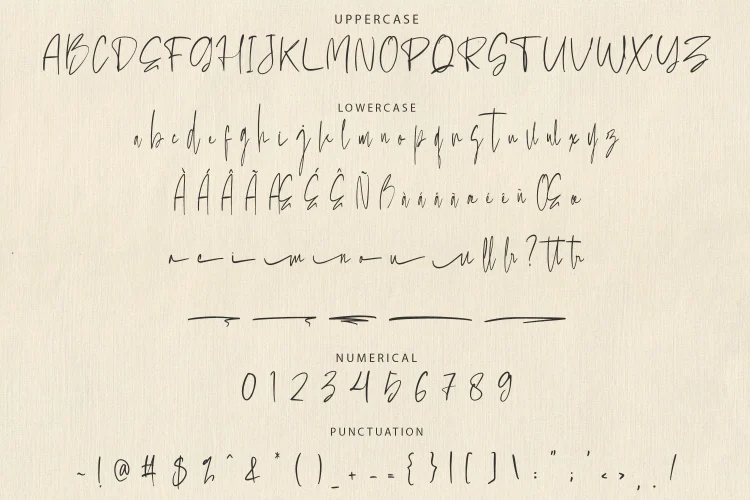 UPPERCASE
A B C D E F G H I J K L M N O P Q R S T U V W X Y Z
LOWERCASE
a b c d e f g h i j k l m n o p q r s t u v w x y z
À Á Â Ã Æ É Ê Ñ ß à á â ã æ é ê ñ Œ œ
a e i m n o u ll lr ? tt tr
NUMERICAL
0 1 2 3 4 5 6 7 8 9
PUNCTUATION
~ ! @ # $ % ^ & * ( ) _ + - = { } | [ ] \ : " ; ' < > , . /